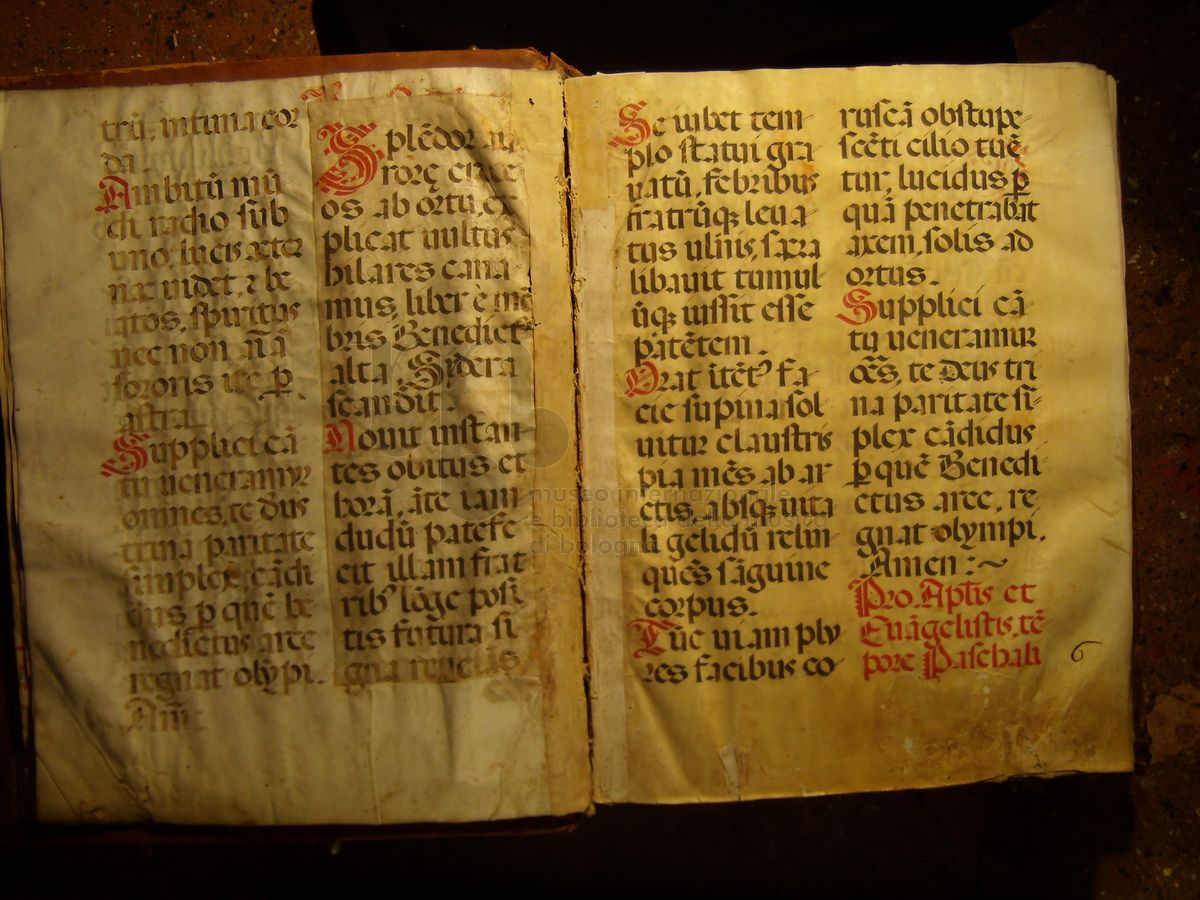 trū, intima cor
da.
Ambitū mū
di radio sub
uno, lucis æter
næ uidet, & be
atos, spiritus
nec non aīa
sororis ire p̲
astra.
Supplici cā
tu ueneramur
omnes, te Dūs
trina paritate
simplex, cādi
dus p̲ quē be
nedictus arce
regnat olypi.
Amē.
Splēdor au-
rorę croce-
os ab ortu, ex
plicat uultus
hilares cana-
mus, liber è mē
bris Benedictꝰ
alta, Sydera
scandit.
Nouit instan-
tes obitus et
horā, āte iam
dudū patefe
cit illam frat
ribꝰ lōge posi
tis futura si
gna reuelās
Se iubet tem-
plo statui gra
uatū, febribus
fratrūqꝫ leua-
tus ulnis, sacra
libauit tumul
ūqꝫ iussit esse
patētem.
Orat itētꝰ fa-
cie supina sol
uitur claustris
pia mēs ab ar
ctis, absqꝫ uita
li gelidū relin
quēs sāguine
corpus.
Tūc uiam plu
res facibus co-
ruscā obstupe-
scēti cilio tuē-
tur, lucidus p̲
quā penetrabat
axem, solis ad
ortus.
Supplici cā-
tu ueneramur
oēs, te Deus tri
na paritate si-
plex cādidus
p̲ quē Benedi-
ctus arce, re-
gnat olympi.
Amen:~
Pro Aplīs et
Euāgelistis, tē
pore Paschali
6
museo internazionale
e biblioteca della musica
di bologna